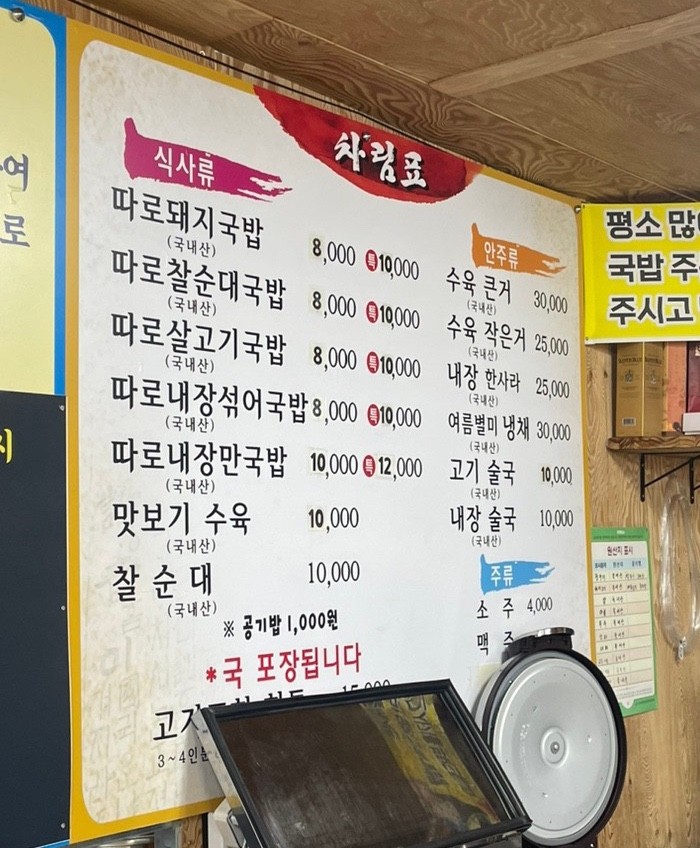 차림표
식사류
따로돼지국밥 8,000 특 10,000
(국내산)
따로찰순대국밥 8,000 특 10,000
(국내산)
따로살고기국밥 8,000 특 10,000
(국내산)
따로내장섞어국밥 8,000 특 10,000
(국내산)
따로내장만국밥 10,000 특 12,000
(국내산)
맛보기 수육 10,000
(국내산)
찰순대 10,000
(국내산)
※ 공기밥 1,000원
*국 포장됩니다
3~4인분
안주류
수육 큰거 30,000
(국내산)
수육 작은거 25,000
(국내산)
내장 한사라 25,000
(국내산)
여름별미 냉채 30,000
(국내산)
고기 술국 10,000
(국내산)
내장 술국 10,000
(국내산)
주류
소 주 4,000
맥 주
평소 많
국밥 주
주시고
원산지 표시
여
로